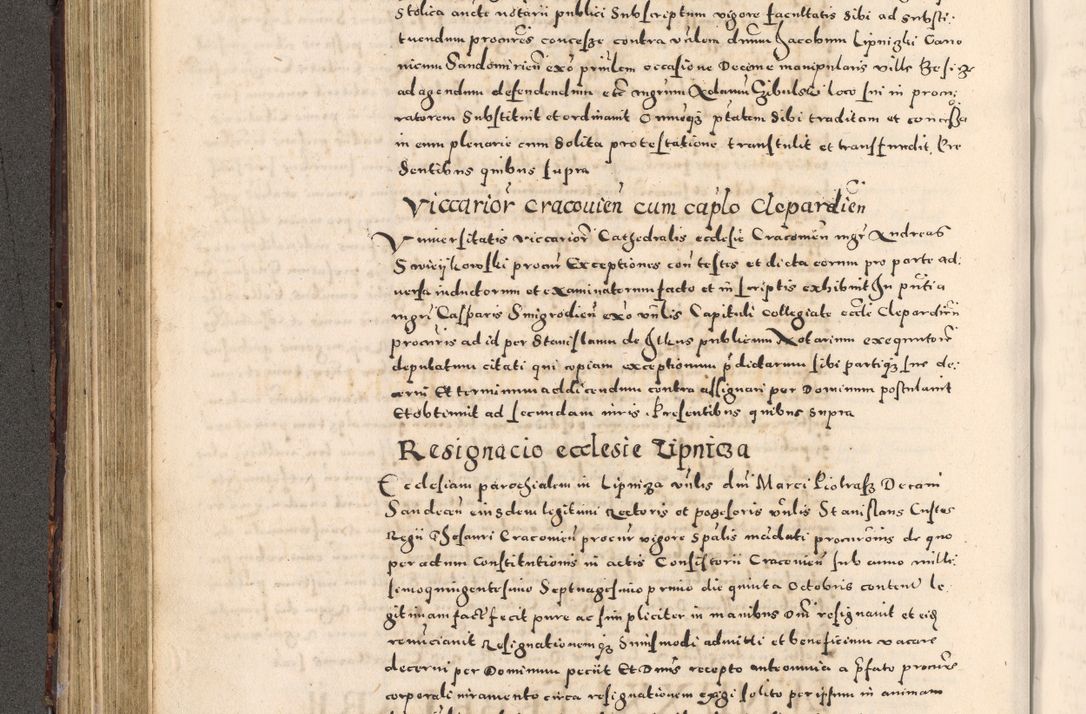 Stolica aucte notarii publici Subscriptum vigore facultatis sibi ad substi:
tuendum procures concesse contra vnlem dnum Jacobum Lipniczki Cano
nicum Sandomirien exo prinlem occasione Decime manipularis ville
ad agendum defendendum etc mgrum Adamum loco sui in procu:
ratorem Substituit et ordinauit Omnemqz ptatem Sibi traditam et concessa
in eum plenarie cum Solita protestatione transtulit et transfundit. Pre
Sentibus quibus supra
Viccarior Cracouien cum caplo Clepardien
Vniuersitatis viccarior Cathedralis ecclesie Cracouien mgr Andreas
procur Exceptiones con testes et dicta eorum pro parte ad:
uersa inductorum et examinatorum facto et in scriptis exhibuit In pntia
mgri Casparis Smigrodien exo vnlis Capituli Collegiate eccle Clepardien
procuris ad id per Stanislaum de publicum Notarium exequutore
deputatum citati qui copiam exceptionum pdictarum sibi partiqz sue de:
cerni Et terminum ad dicendum contra assignari per Dominum postulauit
Et obtinuit ad secundam iuris. Presentibus quibus supra
Resignacio ecclesie Lipnicza
Ecclesiam parochialem in Lipnicza vnlis dni Marci Piotrasz Decani
Sandecen eiusdem legitimi Rectoris et possesoris vnlis Stanislaus Custos
Regii Thesauri Cracouien procur vigore Spalis mandati procuroris de quo
per actum Constitutionis in actis Consistorii Cracouien sub anno mille:
simo quingentesimo Septuagesimo primo die quinta Octobris content le:
gitimam fact fecit pure ac simpliciter in manibus Dni resignauit et eidz
renunciauit Resignationemqz huiusmodi admitti et beneficium vacare
decerni per Dominum peciit Et Dnus recepto anteomnia a pfato procure
corporali iuramento circa resignationem exigi solito per ipsum in animam